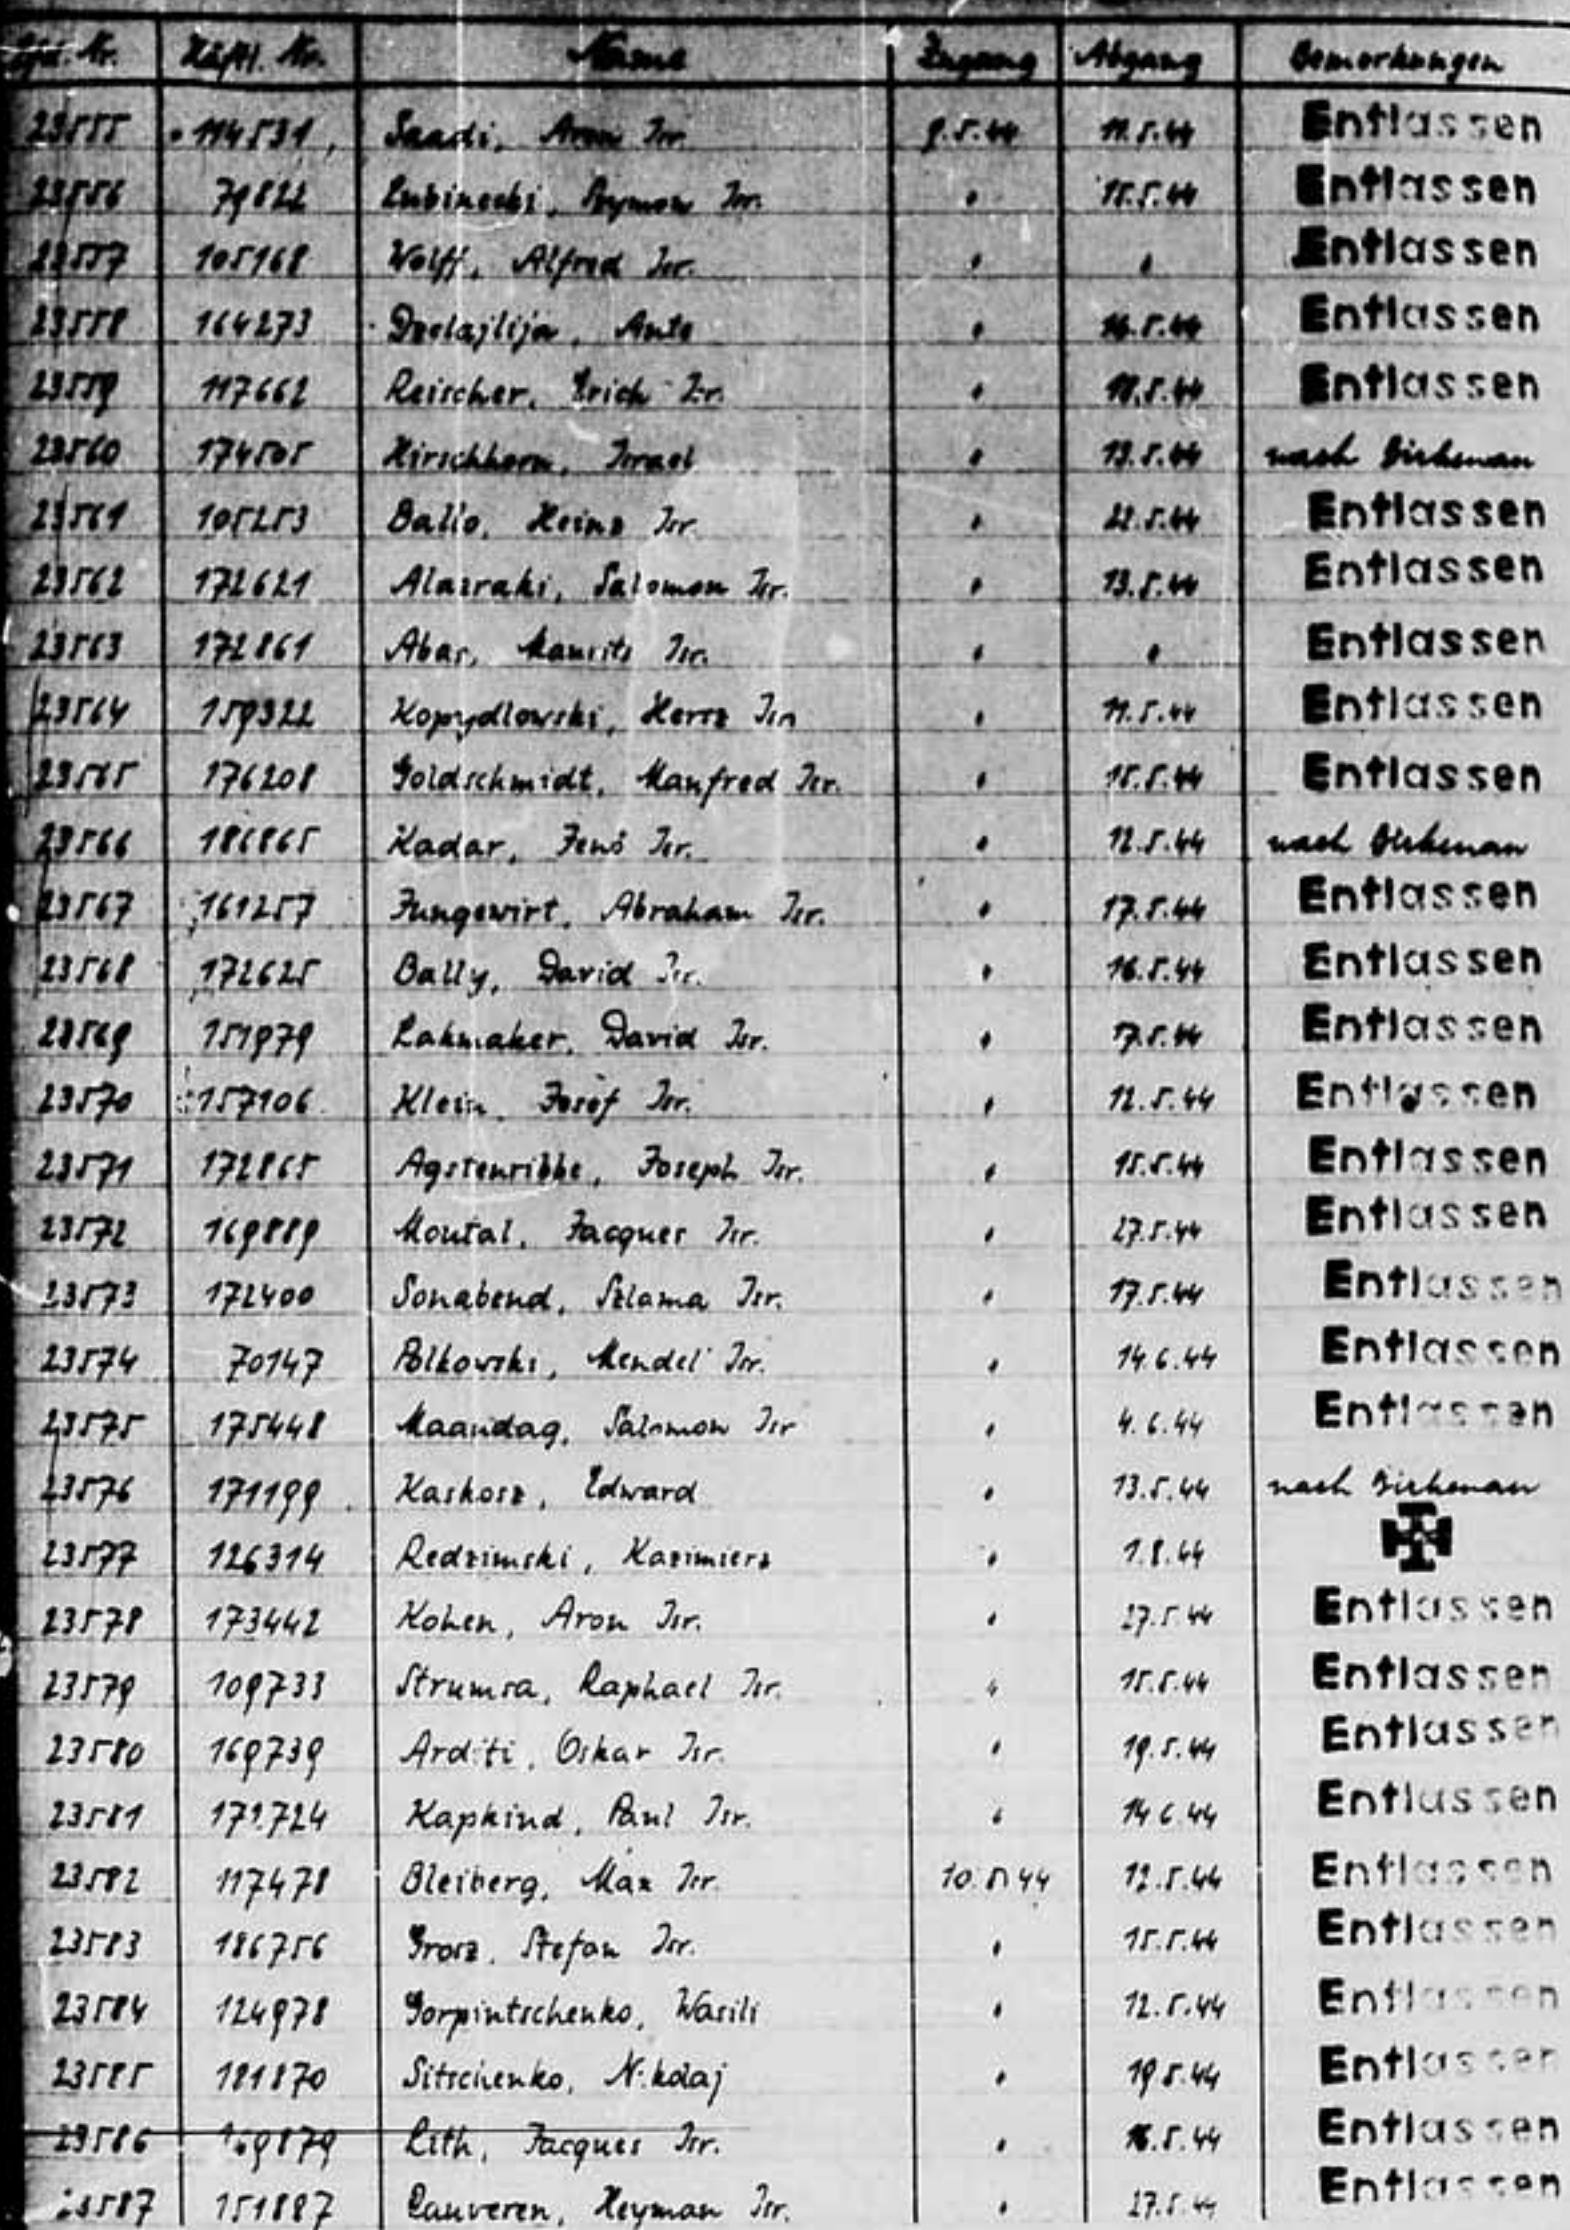 Lfd. Nr. Häftl. Nr. Name Zugang Abgang Bemerkungen
23555 114531 Saadi, Aron Isr. 9.5.44 11.5.44 Entlassen
23556 79822 Lubinecki, Szymon Isr. " 15.5.44 Entlassen
23557 105168 Wolff, Alfred Isr. " " Entlassen
23558 164273 Dzelajlija, Ante " 16.5.44 Entlassen
23559 117662 Reischer, Erich Isr. " 18.5.44 Entlassen
23560 174505 Hirschhorn, Israel " 13.5.44 nach Birkenau
23561 105253 Ballo, Heinz Isr. " 22.5.44 Entlassen
23562 172621 Alazraki, Salomon Isr. " 13.5.44 Entlassen
23563 172861 Abas, Maurits Isr. " " Entlassen
23564 159322 Kopydlowski, Hersz Isr. " 11.5.44 Entlassen
23565 176208 Goldschmidt, Manfred Isr. " 15.5.44 Entlassen
23566 186865 Kadar, Jenö Isr. " 12.5.44 nach Birkenau
23567 161257 Jungewirt, Abraham Isr. " 17.5.44 Entlassen
23568 172625 Bally, David Isr. " 16.5.44 Entlassen
23569 151979 Lakmaker, David Isr. " 17.5.44 Entlassen
23570 157106 Klein, Josef Isr. " 12.5.44 Entlassen
23571 172865 Agstenribbe, Joseph Isr. " 15.5.44 Entlassen
23572 169889 Montal, Jacques Isr. " 27.5.44 Entlassen
23573 172400 Sonabend, Szlama Isr. " 17.5.44 Entlassen
23574 70147 Polkowski, Mendel Isr. " 14.6.44 Entlassen
23575 175448 Maandag, Salomon Isr " 4.6.44 Entlassen
23576 171199 Kaskosz, Edward " 13.5.44 nach Birkenau
23577 126314 Redzimski, Kazimierz " 1.8.44
23578 173442 Kohen, Aron Isr. " 27.5.44 Entlassen
23579 109733 Strumsa, Raphael Isr. " 15.5.44 Entlassen
23580 169739 Arditi, Oskar Isr. " 19.5.44 Entlassen
23581 172724 Kapkind, Paul Isr. " 14.6.44 Entlassen
23582 117478 Bleiberg, Max Isr. 10.5.44 12.5.44 Entlassen
23583 186756 Grosz, Stefan Isr. " 15.5.44 Entlassen
23584 124978 Gorpintschenko, Wasili " 12.5.44 Entlassen
23585 181870 Sitschenko, Nikolaj " 19.5.44 Entlassen
23586 169879 Lith, Jacques Isr. " 16.5.44 Entlassen
23587 151887 Lauveren, Heyman Isr. " 27.5.44 Entlassen